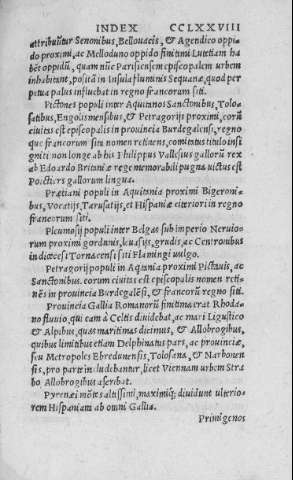 INDEX CCLXXVIII
attribuũtur Senonibus, Bellouacis, & Agendico oppi-
do proximi, ac Melloduno oppido finitimi Lutetiam ha
bẽt oppidũ, quam nũc Parisiensem episcopalem urbem
inhabitant, positã in Insula fluminis Sequanæ, quod per
petua palus influebat in regno francorum siti.
Pictones populi inter Aquitanos Sanctonibus, Tolo-
satibus, Engolismensibus, & Petragorijs proximi, corũ
ciuitas est episcopalis in prouincia Burdegalensi, regno
que francorum situ nomen retinens, comitatus titulo insi
gniti non longe ab his Philippus Vallesius gallorũ rex
ab Edoardo Britaniæ rege memorabili pugna uictus est
Poictiers gallorum lingua.
Præciani populi in Aquitania proximi Bigeroni-
bus, Vocatijs, Tarusatijs, et Hispaniæ citeriori in regno
francorum siti.
Pleumosij populi inter Belgas sub imperio Neruio-
rum proximi gordunis, leuasijs, grudis, ac Centronibus
in diœcesi Tornacensi siti Flamingi uulgo.
Petragorij populi in Aqtania proximi Pictauis, ac
Sanctonibus. eorum ciuitas est episcopalis nomen reti-
nẽs in prouincia Burdegalẽsi, & francorũ regno siti.
Prouincia Gallia Romanorũ finitima erat Rhoda-
no fluuio, qui eam à Celtis diuidebat, ac mari Ligustico
& Alpibus, quas maritimas dicimus, & Allobrogibus,
quibus limitibus etiam Delphinatus pars, ac prouinciæ,
seu Metropoles Ebredunensis, Tolosana, & Narbonen
sis, pro parte includebantur, licet Viennam urbem Stra
bo Allobrogibus ascribat.
Pyrenæi mõtes altissimi, maximiq; diuidunt ulterio-
rem Hispaniam ab omni Gallia.
Primigenos